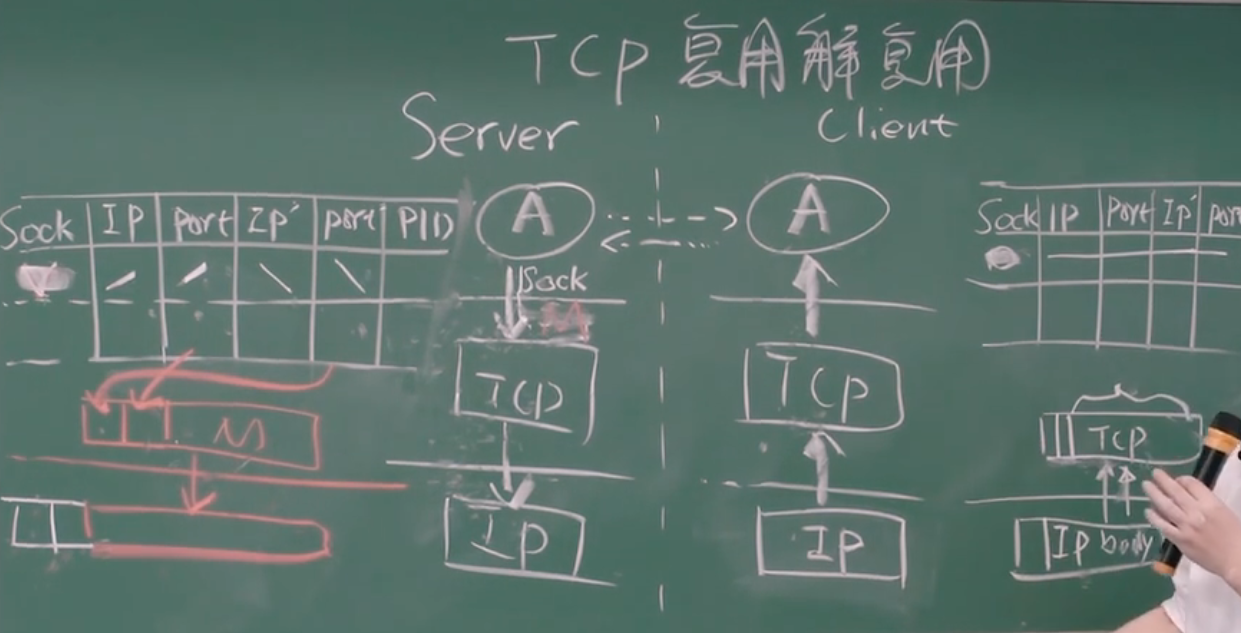 TCP 复用解复用
Server
Client
Sock IP Port IP' port' PID
A
Sock
M
TCP
IP
M
A
TCP
IP
Sock IP Port IP' port
TCP
IP body